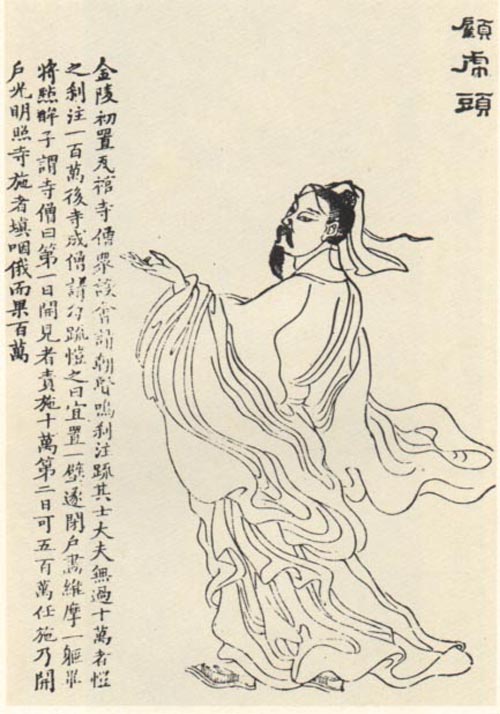 顧虎頭
金陵初置瓦棺寺僧眾設會請朝賢鳴刹注疏其士大夫無過十萬者愷
之刹注一百萬後寺成僧請勾疏愷之曰宜置一壁遂閉戶畫維摩一軀畢
將點眸子謂寺僧曰第一日開見者責施十萬第二日可五百萬任施乃開
戶光明照寺施者填咽俄而果百萬